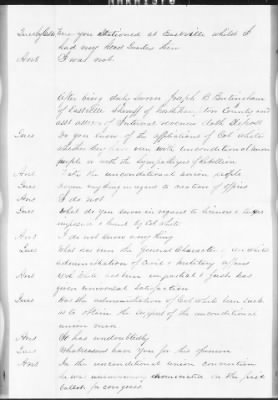 Were you stationed at Eastville while I
had my Head Quarters there
Ans I was not
After being duly sworn Joseph B Brittingham
of Eastville Sheriff of Northampton County and
asst assessor of Internal revenue doth depose
Ques Do you know of the affiliations of Col White
whether they have been with unconditional union
people or with the sympathizers of rebellion
Ans With the unconditional union people
Ques Know anything in regard to auction of
Ans I do not
Ques What do you know in regard to licenses & taxes
imposed & fixed by Col White
Ans I do not know any thing
Ques What has been the General Character of his
administration of civil & military affairs
Ans It has been impartial & just has
given universal satisfaction
Ques Has the administration of Col White been such
as to obtain the support of the unconditional
union men
Ans It has undoubtedly
Ques What reasons have you for this opinion
Ans In the unconditional union convention
he was unanimously nominated on the first
ballot for congress